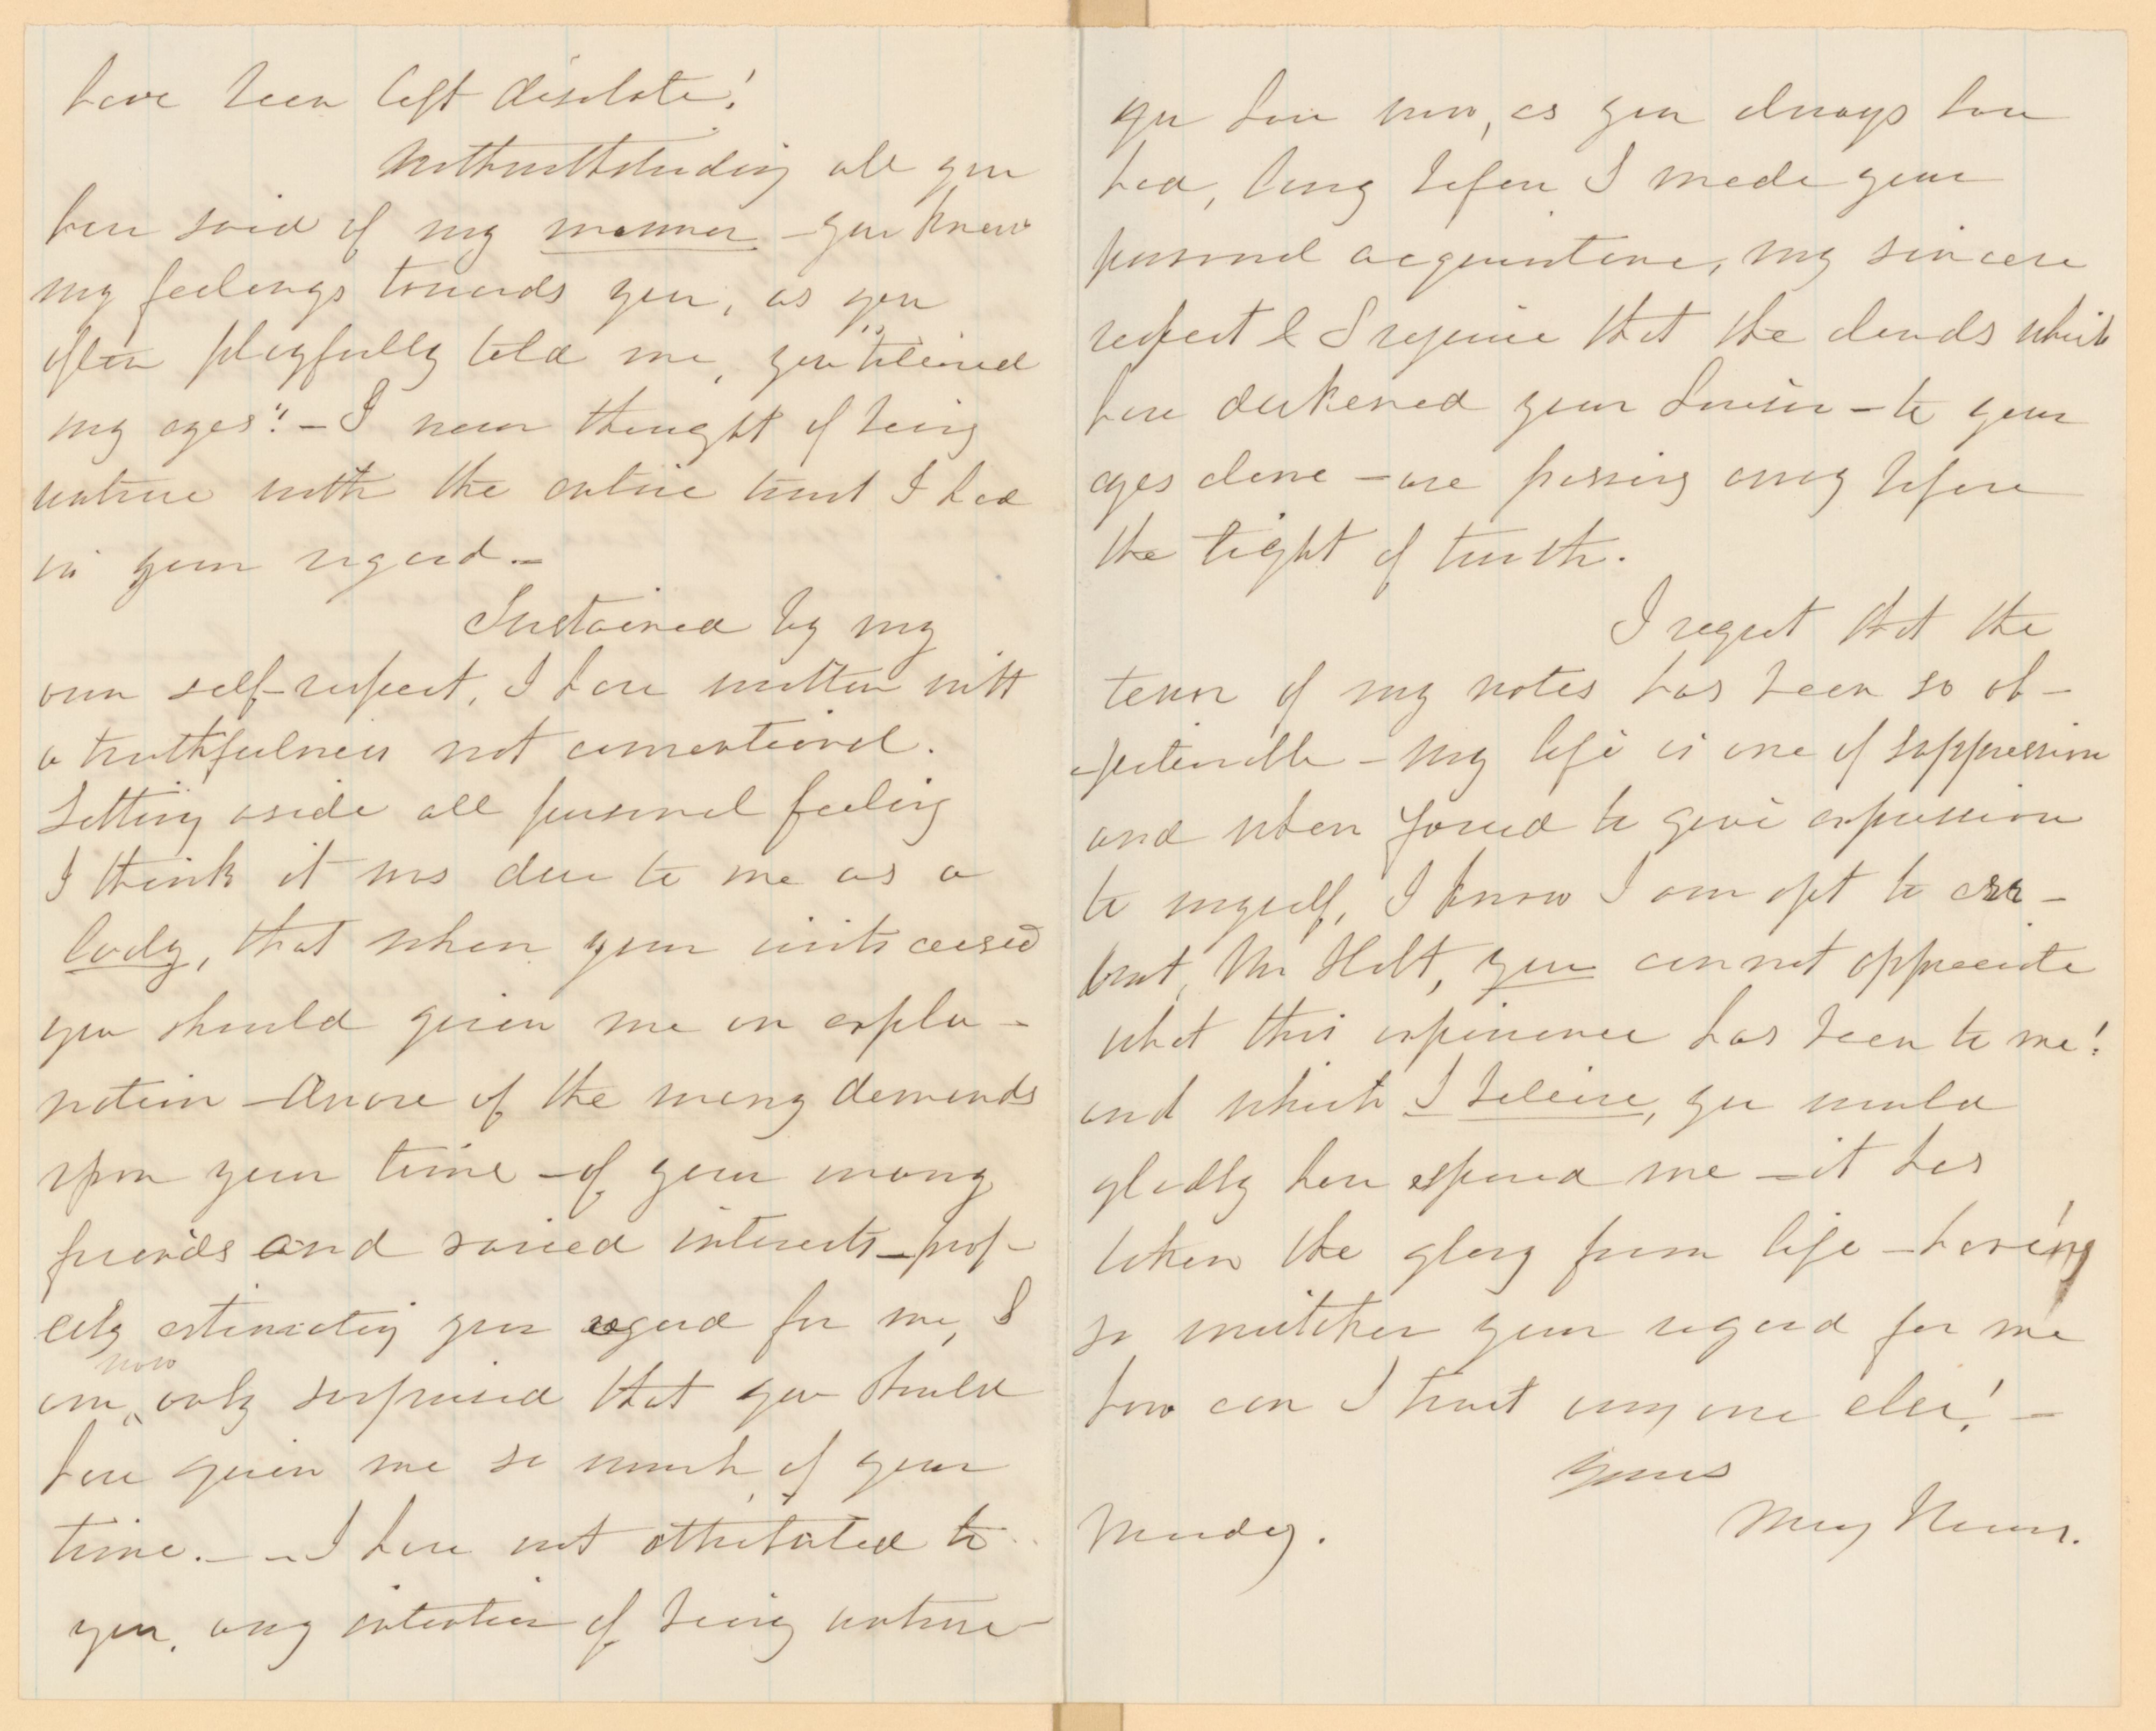 have been left desolate!
Notwithstanding all you
have said of my manner - you knew
my feelings towards you, as you
often playfully told me, you "believed
my eyes"! - I never thought of being
untrue with the entire trust I had
in your regard. -
Sustained by my
own self-respect, I have written with
a truthfulness not conventional.
Setting aside all personal feeling
I think it was due to me as a
lady, that when your visits ceased
you should given me an expla-
nation - Aware of the many demands
upon your time - of your many
friends and varied interests - prop-
erly estimating your regard for me, I
now
am only surprised that you should
have given me so much of your
time. - - I have not attributed to
you, any intention of being untrue -
you have now, as you always have
had, long before I made your
personal acquaintance, my sincere
respect & I rejoice that the clouds which
have darkened your horizon - to your
eyes alone - are passing away before
the light of truth.
I regret that the
tenor of my notes has been so ob-
jectionable - my life is one of suppression
and when forced to give expression
to myself, I know I am apt to err -
but, Mr Holt, you cannot appreciate
what this experience has been to me!
and which I believe, you would
gladly have spared me - it has
taken the glory from life - having
so mistaken your regard for me
how can I trust any one else! -
Yours
Monday. Mary